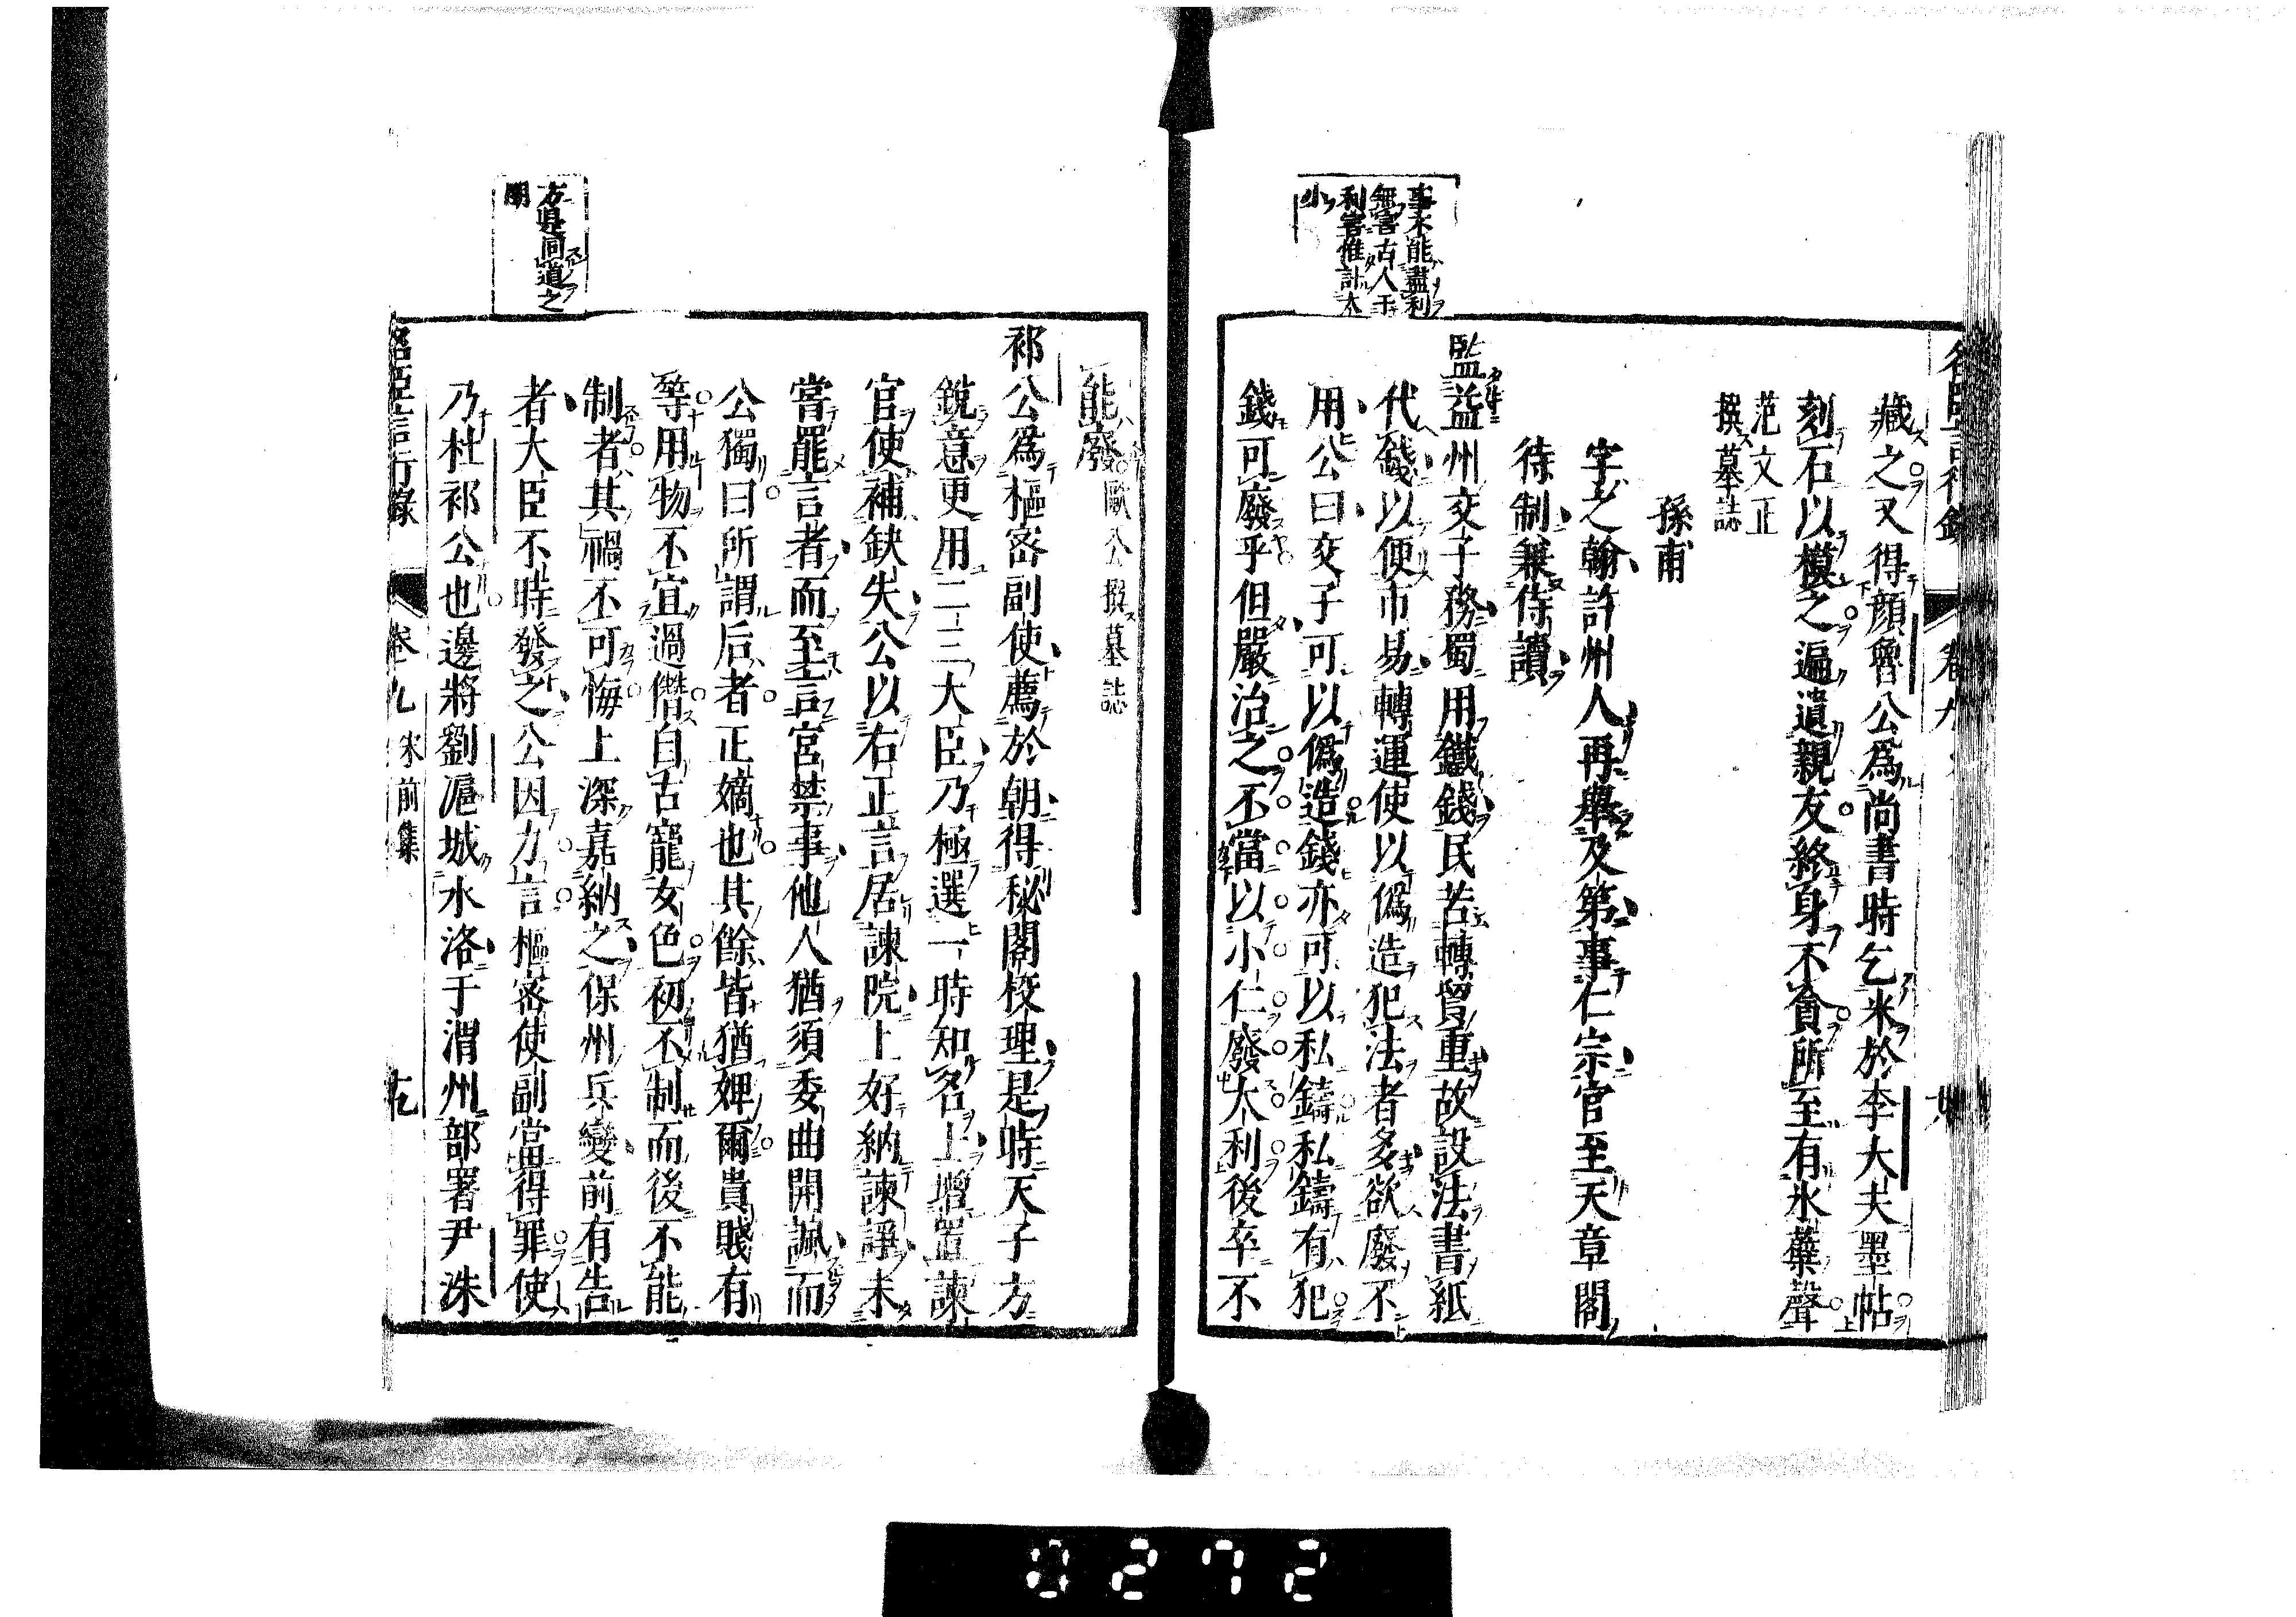 名臣言行錄
卷九
事不能盡利
無害古人于
利害惟計大
小
藏之又得顔魯公爲尚書時乞米於李大夫墨帖
刻石以模之遍遺親友終身不貪所至有氷蘗聲
范文正
撰墓誌
孫甫
字之翰許州人再舉及第事仁宗官至天章閣
待制兼侍讀
監益州交子務蜀用鐵錢民苦轉貿重故設法書紙
代錢以便市易轉運使以僞造犯法者多欲廢不
用公曰交子可以僞造錢亦可以私鑄私鑄有犯
錢可廢乎但嚴治之不當以小仁廢大利後卒不
能廢歐公撰墓誌
祁公爲樞密副使薦於朝得秘閣校理是時天子方
銳意更用二三大臣乃極選一時知名士增置諫
官使補缺失公以右正言居諫院上好納諫諍未
嘗罷言者而至言宮禁事他人猶須委曲開諷而
公獨曰所謂后者正嫡也其餘皆猶婢爾貴賤有
等用物不宜過僭自古寵女色初不制而後不能
制者其禍不可悔上深嘉納之保州兵變前有告
者大臣不時發之公因力言樞密使副當得罪使
乃杜祁公也邊將劉滬城水洛于渭州部署尹洙
方是同道之
朋
名臣言行錄
卷九
宋前集